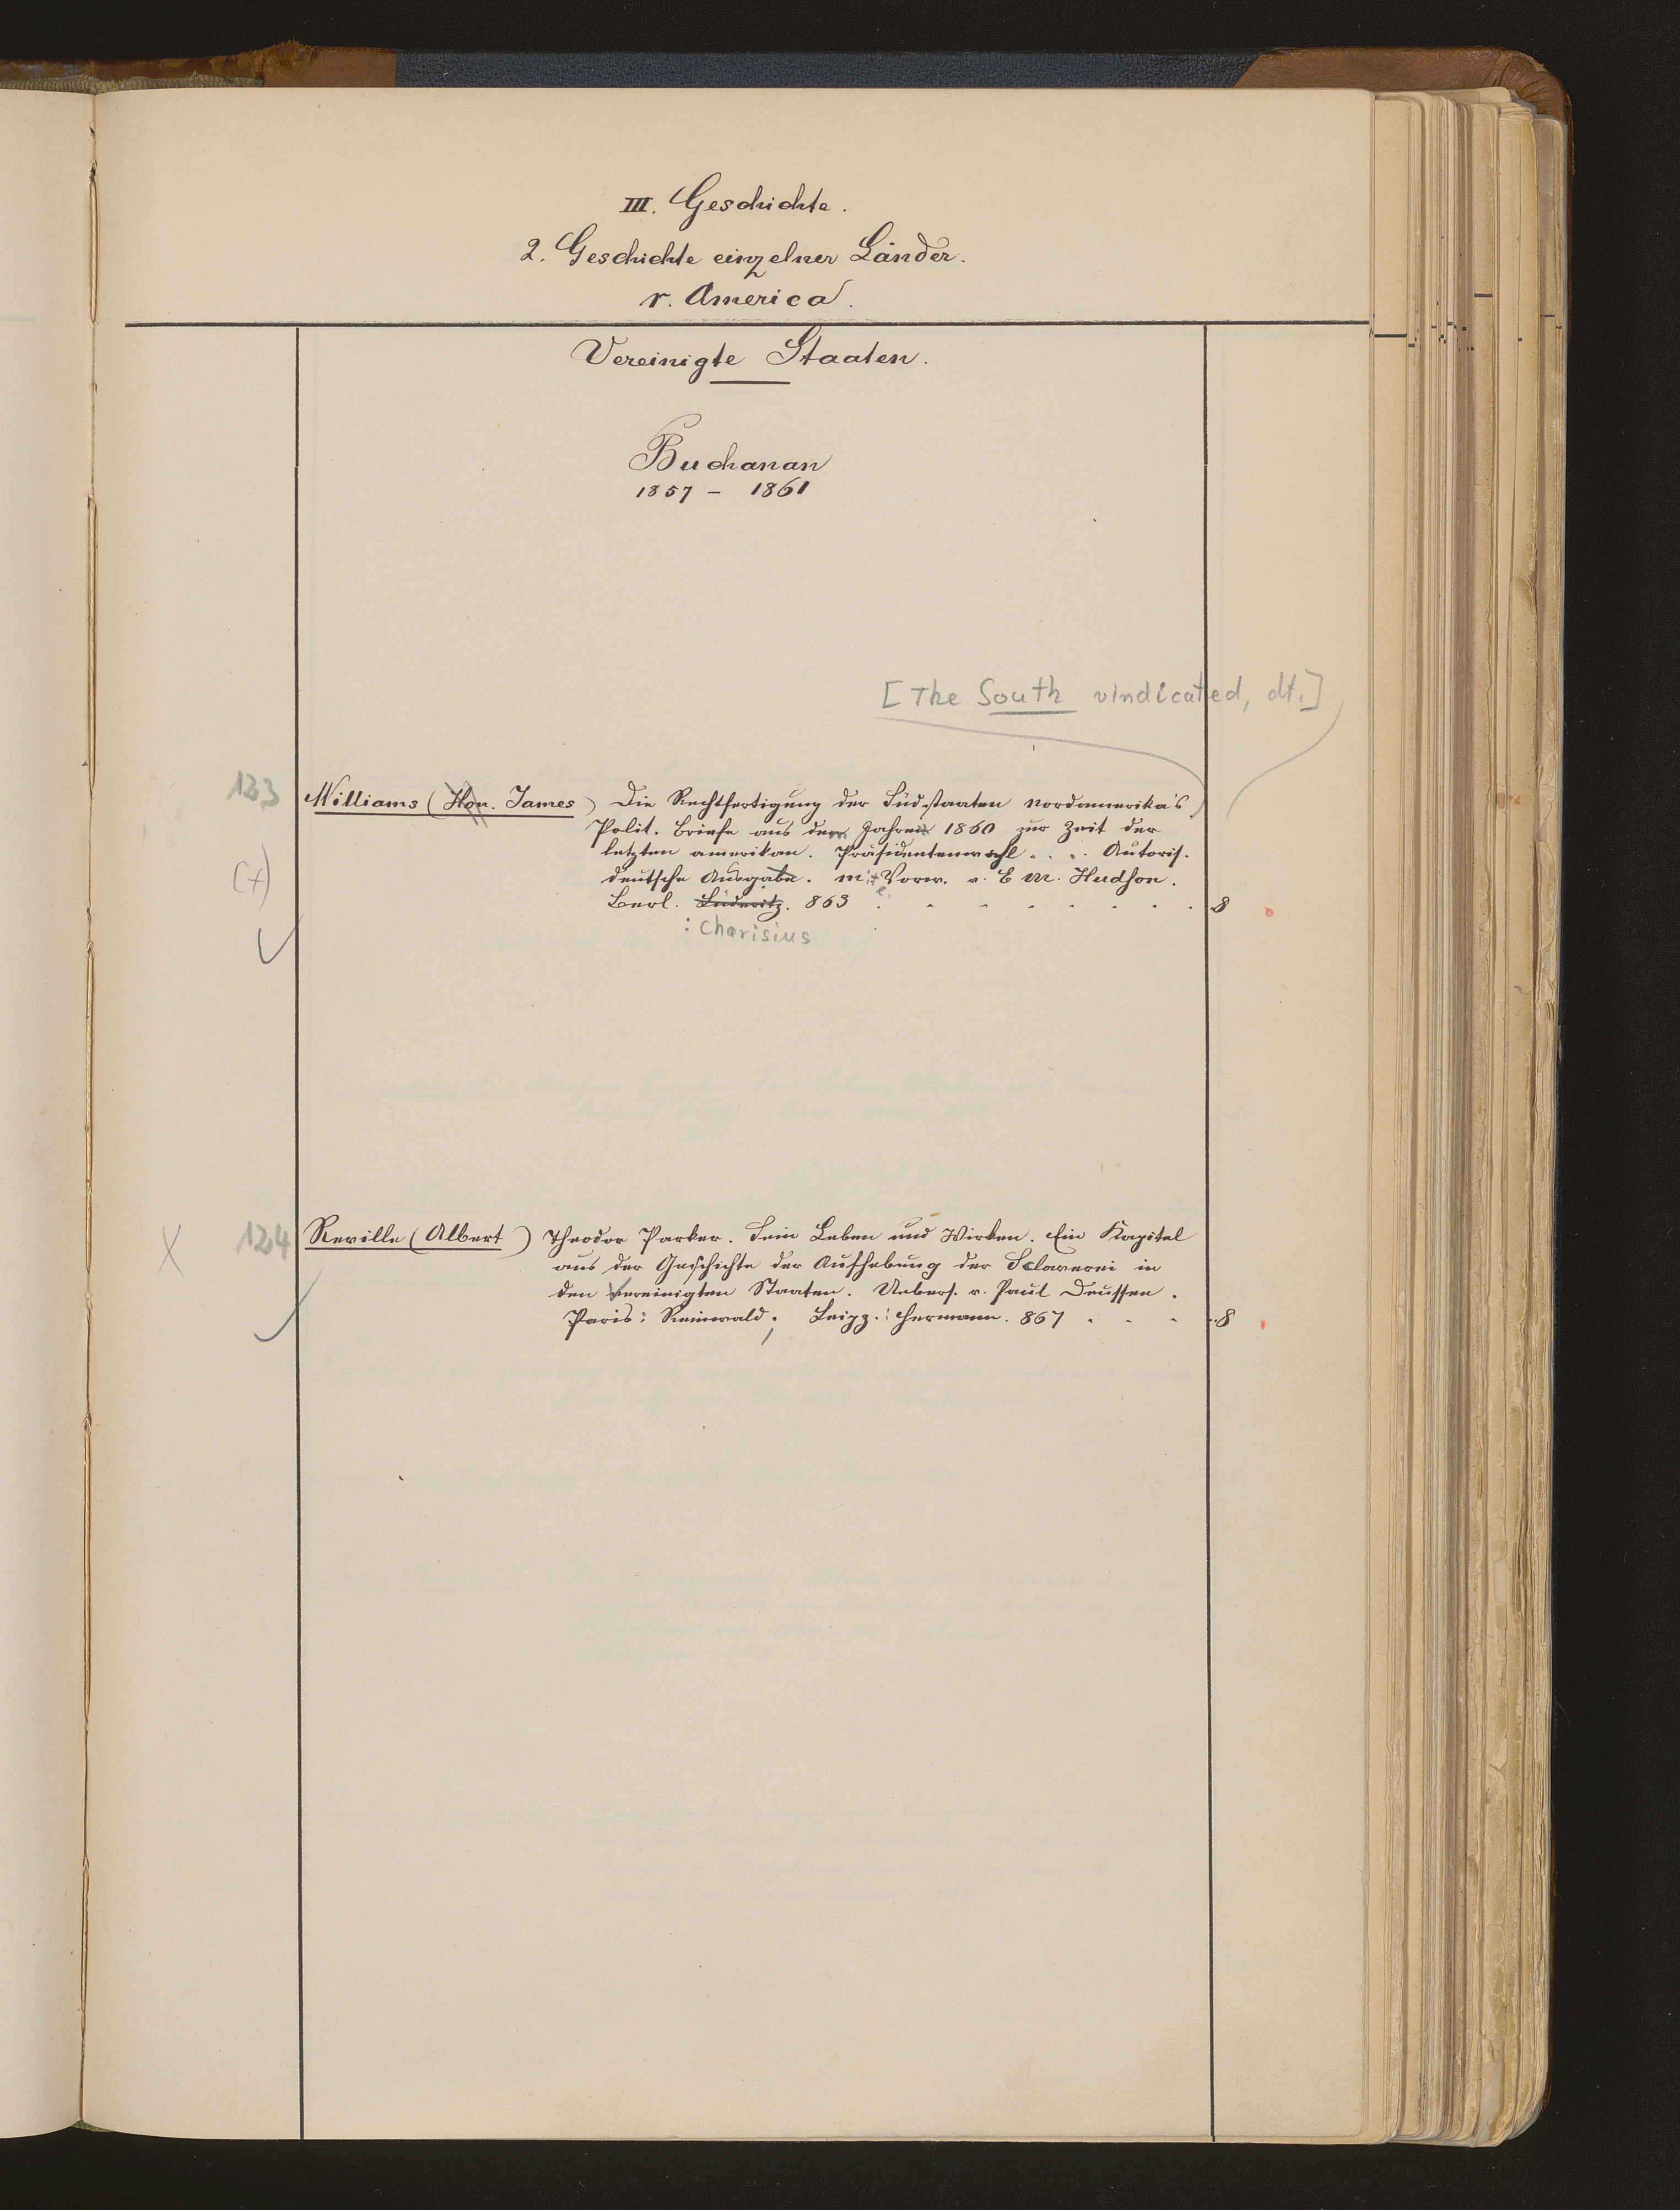 III. Geschichte.
2. Geschichte einzelner Länder.
r. America.
Vereinigte Staaten.
Buchanan
1857 - 1861
[The South vindicated, dt.]
123 Williams (Hon. James) Die Rechtfertigung der Südstaaten Nordamerika's
Polit. Briefe aus dem Jahre 1860 zur Zeit der
letzten amerikan. Präsidentenwahl . . . . Autoris.
(+) deutsche Ausgabe. mit Vorw. v. E M. Hudson.
Berl. Lüderitz. 863 . . . . . . . 8
: Charisius
X 124 Reville (Albert) Theodor Parker. Sein Leben und Wirken. Ein Kapitel
aus der Geschichte der Aufhebung der Sclaverei in
den Vereinigten Staaten. Uebers. v. Paul Deussen.
Paris: Reinwald; Leipz.: Hermann. 867 . . . . 8